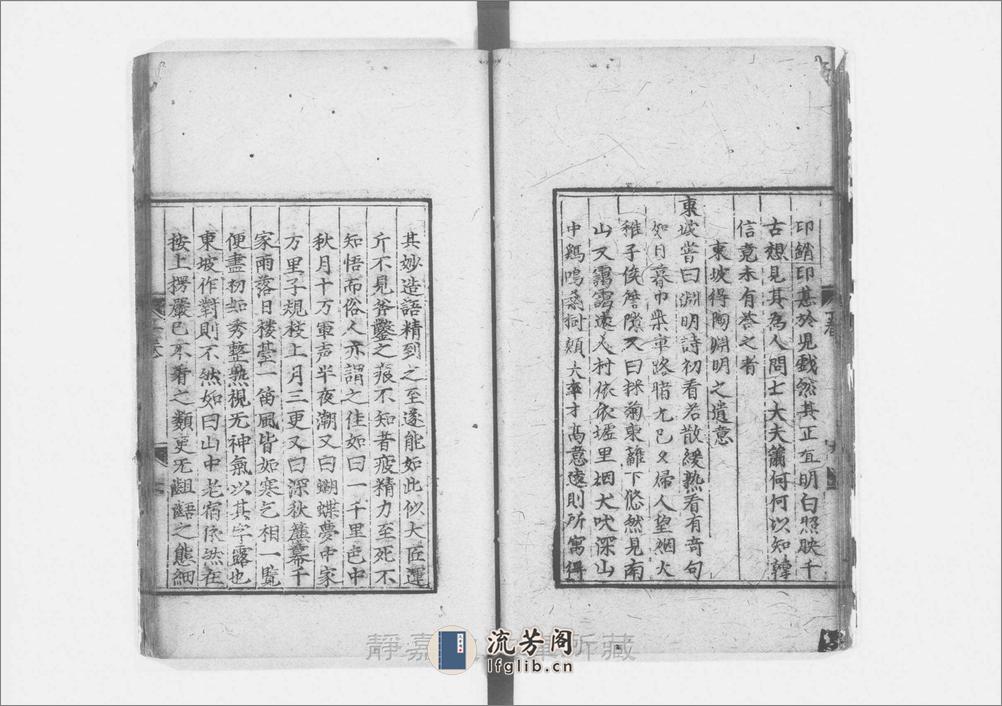 印銷印甚於兒戲然其正直明白照映千
古想見其為人問士大夫蕭何何以知韓
信竟未有荅之者
東坡得陶淵明之遺意
東坡嘗曰淵明詩初看若散緩熟看有奇句
如日暮巾柴車路暗光已夕婦人望烟火
稚子候簷隙又曰採菊東籬下悠然見南
山又靄靄遠人村依依墟里烟犬吠深山
中鷄鳴桒樹顛大率才髙意遠則所寓得
其妙造語精到之至遂能如此似大匠運
斤不見斧鑿之痕不知者疲精力至死不
知悟而俗人亦謂之佳如曰一千里色中
秋月十万軍声半夜潮又曰蝴蝶夢中家
万里子規枝上月三更又曰深秋簾幕千
家雨落日楼臺一笛風皆如寒乞相一覧
便盡初如秀整熟視无神氣以其字露也
東坡作對則不然如曰山中老宿依然在
按上楞嚴已不看之類更无齟齬之態細
卷
静嘉
所藏
流芳阁
lfglib.cn